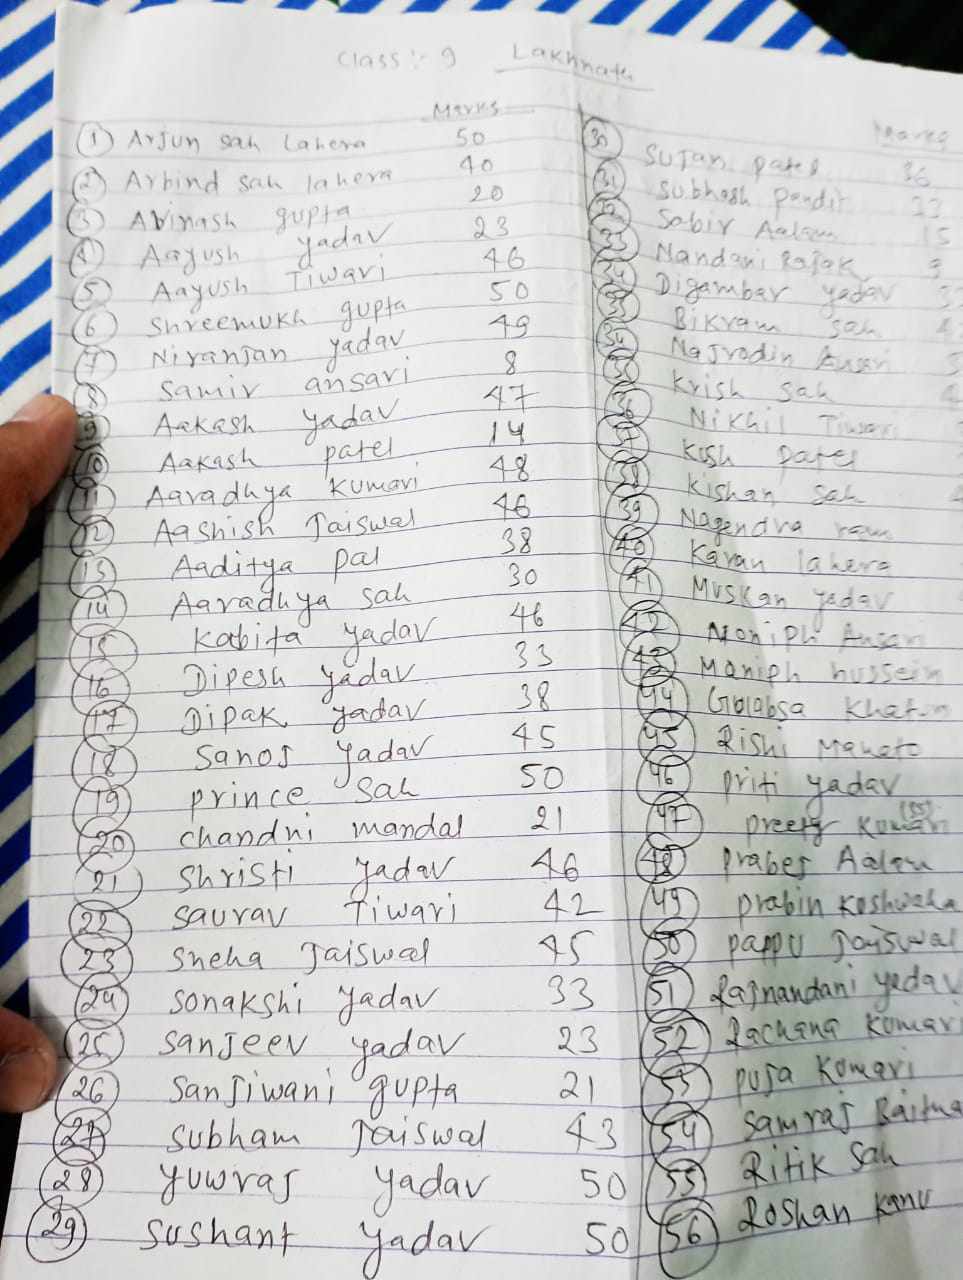 Class :- 9 Lakhnath
Marks
1 Arjun sah lahera 50
2 Arbind sah lahera 40
3 Abinash gupta 20
4 Aayush yadav 23
5 Aayush Tiwari 46
6 Shreemukh gupta 50
7 Niranjan yadav 49
8 Samir ansari 8
9 Aakash yadav 47
10 Aakash patel 14
11 Aaradhya kumari 48
12 Aashish Jaiswal 46
13 Aaditya pal 38
14 Aaradhya sah 30
15 Kabita yadav 46
16 Dipesh yadav 33
17 Dipak yadav 38
18 Sanoj yadav 45
19 prince sah 50
20 chandni mandal 21
21 Shristi yadav 46
22 saurav Tiwari 42
23 Sneha Jaiswal 45
24 sonakshi yadav 33
25 Sanjeev yadav 23
26 Sanjiwani gupta 21
27 Subham Jaiswal 43
28 yuwraj yadav 50
29 Sushant yadav 50
Marks
30 Sujan patel 36
31 Subhash Pandit 33
32 Sabir Aalam 15
33 Nandani Rajak 9
34 Digambar yadav
Bikram sah
Najrodin Ansari
Krish Sah
36 Nikhil Tiwari
37 Kush patel
38 Kishan sah
39 Nagendra ram
40 Karan lahera
41 Muskan yadav
42 Moniph Ansari
43 Maniph hussein
44 Golabsa Khatun
45 Rishi Mahato
46 priti yadav
47 preety Kumari
48 prabej Aalam
49 prabin Koshwaha
50 pappu Jaiswal
51 Rajnandani yadav
52 Rachana Kumari
53 puja Kumari
54 Samraj Baitha
55 Ritik Sah
56 Roshan Kanu